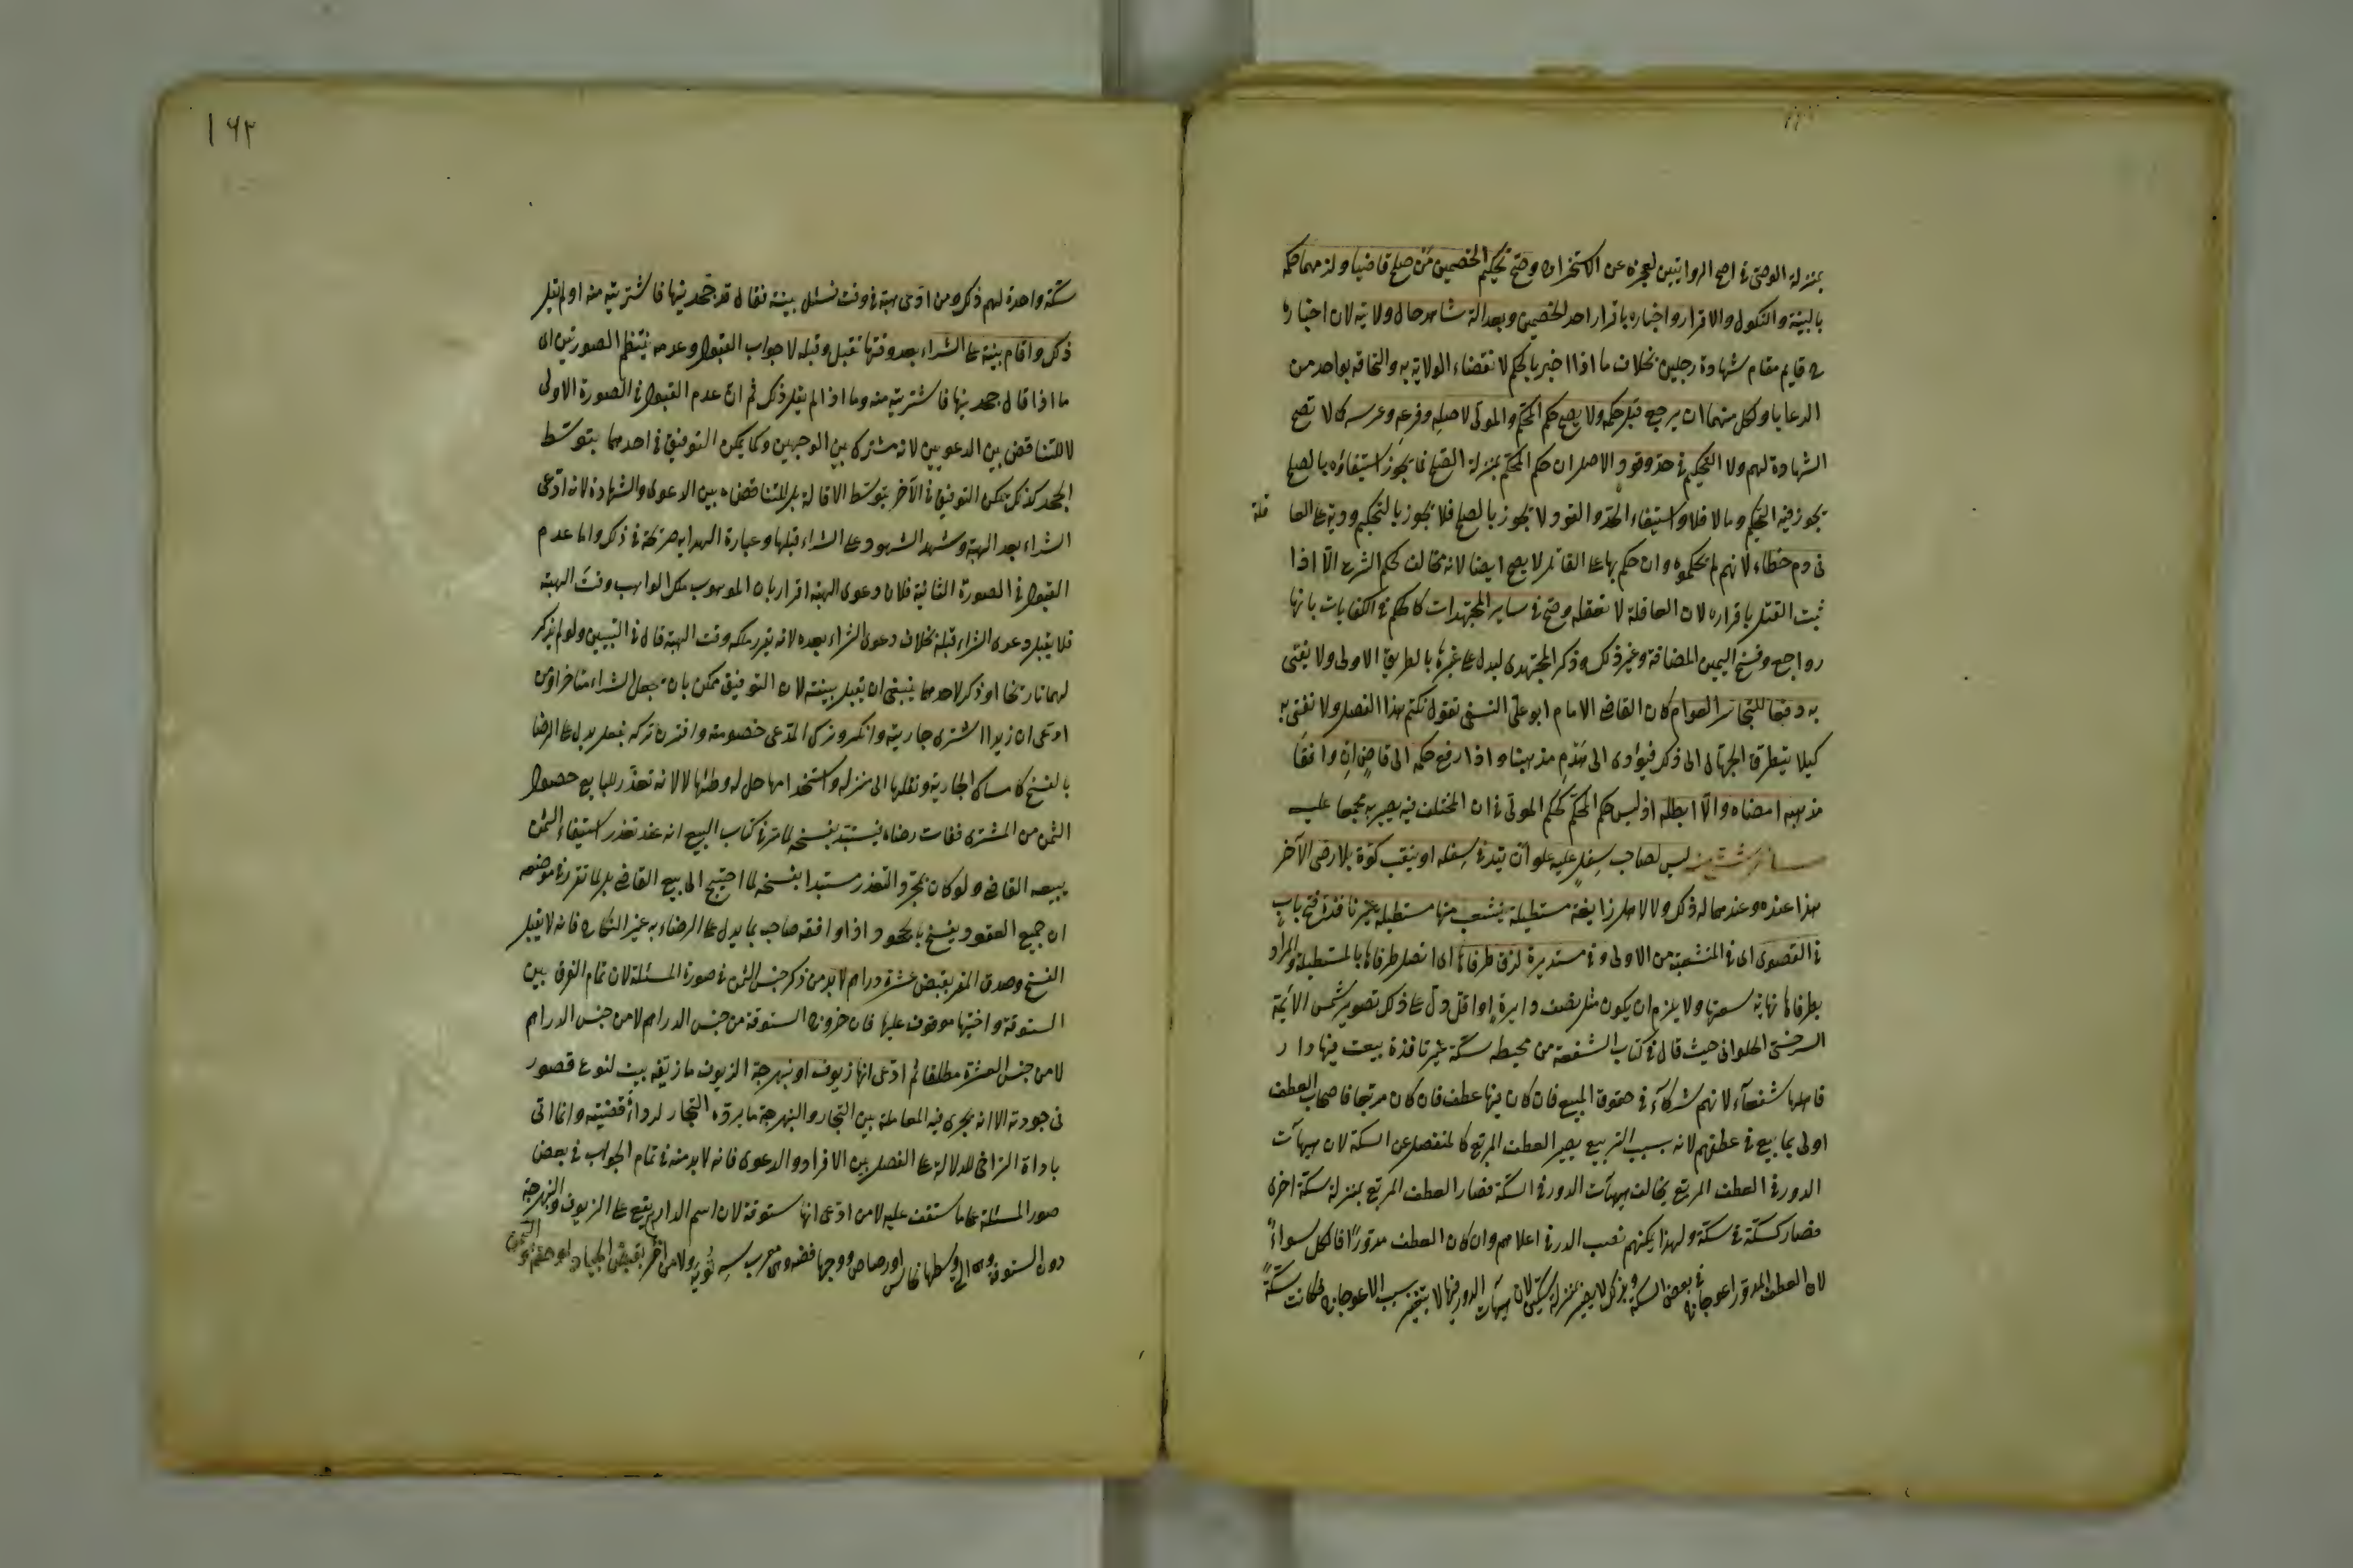 بمنزلة الوصى فى اصح الروايتين لعجزه عن الاستخراف وصح تحكيم الخصمين من صلح قاضيا ولزمهما حكمه
بالبينة والنكول والاقرار واخباره باقرار احد الخصمين وبعدالة شاهد حال ولايته لان اخباره
قايم مقام شهادة رجلين بخلاف ما اذا اخبر بالحكم لانقضاء الولاية به والتحاقه بواحد من
الرعايا ولكل منهما ان يرجع قبل حكمه ولا يصح حكم المحكم والمولى لاصله وفرعه وعرسه كما لا تصح
الشهادة لهم ولا التحكيم فى حد وقود والاصل ان حكم المحكم بمنزلة الصلح فما يجوز استيفاؤه بالصلح
يجوز فيه التحكيم وما لا فلا واستيفاء الحد والقود لا يجوز بالصلح فلا يجوز بالتحكيم ودية على العا
قلة
فى دم خطاء لانهم لم يحكموه وان حكم بها على القاتل لا يصح ايضا لانه مخالف لحكم الشرع الا اذا
ثبت القتل باقراره لان العاقلة لا تعقله وصح فى ساير المجتهدات كالحكم فى الكنايات بانها
رواجع وفسخ اليمين المضافة وغير ذلك وذكر المجتهدى ليدل على غيرها بالطريق الاولى ولا يفتى
به دفعا لتجاسر العوام كان القاضى الامام ابو على النسفى يقول نكتم هذا الفصل ولا نفتى به
كيلا يتطرق الجهال الى ذلك فيؤدى الى هدم مذهبنا واذا رفع حكمه الى قاض ان وافق
مذهبه امضاه والا ابطله اذ ليس حكم المحكم كحكم المولى فى ان المختلف فيه يصير به مجمعا عليه
مسائل شتى منه ليس لصاحب سفل عليه علو ان يتد فى سفله او ينقب كوة بلا رضى الآخر
هذا عنده وعندهما له ذلك ولا لاهل زايغة مستطيلة ينشعب منها مستطيلة غير نافذة فتح باب
فى القصوى اى فى المنشعبة من الاولى وفى مستديرة لزق طرفاها اى اتصل طرفاها بالمستطيلة والمراد
بطرفاها نهاية سعتها ولا يلزم ان يكون مثل نصف دايرة او اقل دل على ذلك تصوير شمس الائمة
السرخسى الحلوانى حيث قال فى كتاب الشفعة من محيطه سكة غير نافذة بيعت فيها دار
فاهلها شفعاء لانهم شركاء فى حقوق المبيع فان كان فيها عطف فان كان مربعا فاصحاب العطف
اولى بما بيع فى عطفهم لانه بسبب التربيع يصير العطف المربع كالمنفصل عن السكة لان هيئات
الدور فى العطف المربع يخالف هيئات الدور فى السكة فصار العطف المربع بمنزلة سكة اخرى
فصار كسكة فى سكة ولهذا يمكنهم نصب الدرب فى اعلاهم وان كان العطف مدورا فالكل سواء
لان العطف المدور اعوجاج فى بعض السكة وبذلك لا يصير بمنزلة سكتين لان هيئات الدور فيها لا يتغير بسبب الاعوجاج فكانت سكة
١٦٣
سكة واحدة لهم ذلك ومن ادعى هبة فى وقت فسئل بينة فقال قد جحدنيها فاشتريته منه او لم يقل
ذلك واقام بينة على الشراء بعد وقتها تقبل وقبله لا جواب القبول وعدمه ينتظم الصورتين اى
ما اذا قال جحدنيها فاشتريته منه وما اذا لم يقل ذلك ثم ان عدم القبول فى الصورة الاولى
لا للتناقض بين الدعويين لانه مشترك بين الوجهين وكما يمكن التوفيق فى احدهما بتوسط
الجحد كذلك يمكن التوفيق فى الآخر بتوسط الاقالة بل للتناقض بين الدعوى والشهادة لانه ادعى
الشراء بعد الهبة وشهد الشهود على الشراء قبلها وعبارة الهداية صريحة فى ذلك واما عدم
القبول فى الصورة الثانية فلان دعوى الهبة اقرار بان الموهوب ملك الواهب وقت الهبة
فلا يقبل دعوى الشراء قبله بخلاف دعوى الشراء بعده لانه يقرر ملكه وقت الهبة قال فى التبيين ولو لم يذكر
لهما تاريخا او ذكر لاحدهما ينبغى ان تقبل بينته لان التوفيق ممكن بان يجعل الشراء متاخرا ومن
ادعى ان زيدا اشترى جاريته وانكر وترك المدعى خصومته واقترن تركه بفعل يدل على الرضا
بالفسخ كامساك الجارية ونقلها الى منزله واستخدامها حل له وطئها لا لانه تعذر للبايع حصول
الثمن من المشترى ففات رضاه فيستبد بفسخه لما مر فى كتاب البيع انه عند تعذر استيفاء الثمن
يبيعه القاضى ولو كان بمجرد التعذر مستبدا بفسخه لما احتيج الى بيع القاضى بل لما تقرر فى موضعه
ان جميع العقود ينفسخ بالجحود اذا وافقه صاحبه بما يدل على الرضاء به غير النكاح فانه لا يقبل
الفسخ وصدق المقر بقبض عشرة دراهم لا بد من ذكر جنس الثمن فى صورة المسئلة لان تمام الفرق بين
الستوقة واختيها موقوف عليها فان خروج الستوقة من جنس الدراهم لا من جنس الدراهم
لا من جنس العشرة مطلقا ثم ادعى انها زيوف او نبهرجة الزيوف ما زيفه بيت لنوع قصور
فى جودته الا انه يجرى فيه المعاملة بين التجار والنبهرجة ما يرده التجار لرداءة فضته وانما اتى
باداة التراخى للدلالة على الفصل بين الاقرار والدعوى فانه لا بد منه فى تمام الجواب فى بعض
صور المسئلة على ما ستقف عليه لا من ادعى انها ستوقة لان اسم الدراهم يقع على الزيوف والنبهرجة
دون الستوقة وهى التى وسطها نحاس او رصاص ووجهها فضة وهى معرب سه تويه ولا من اقر بقبض الجياد او حقه او الثمن